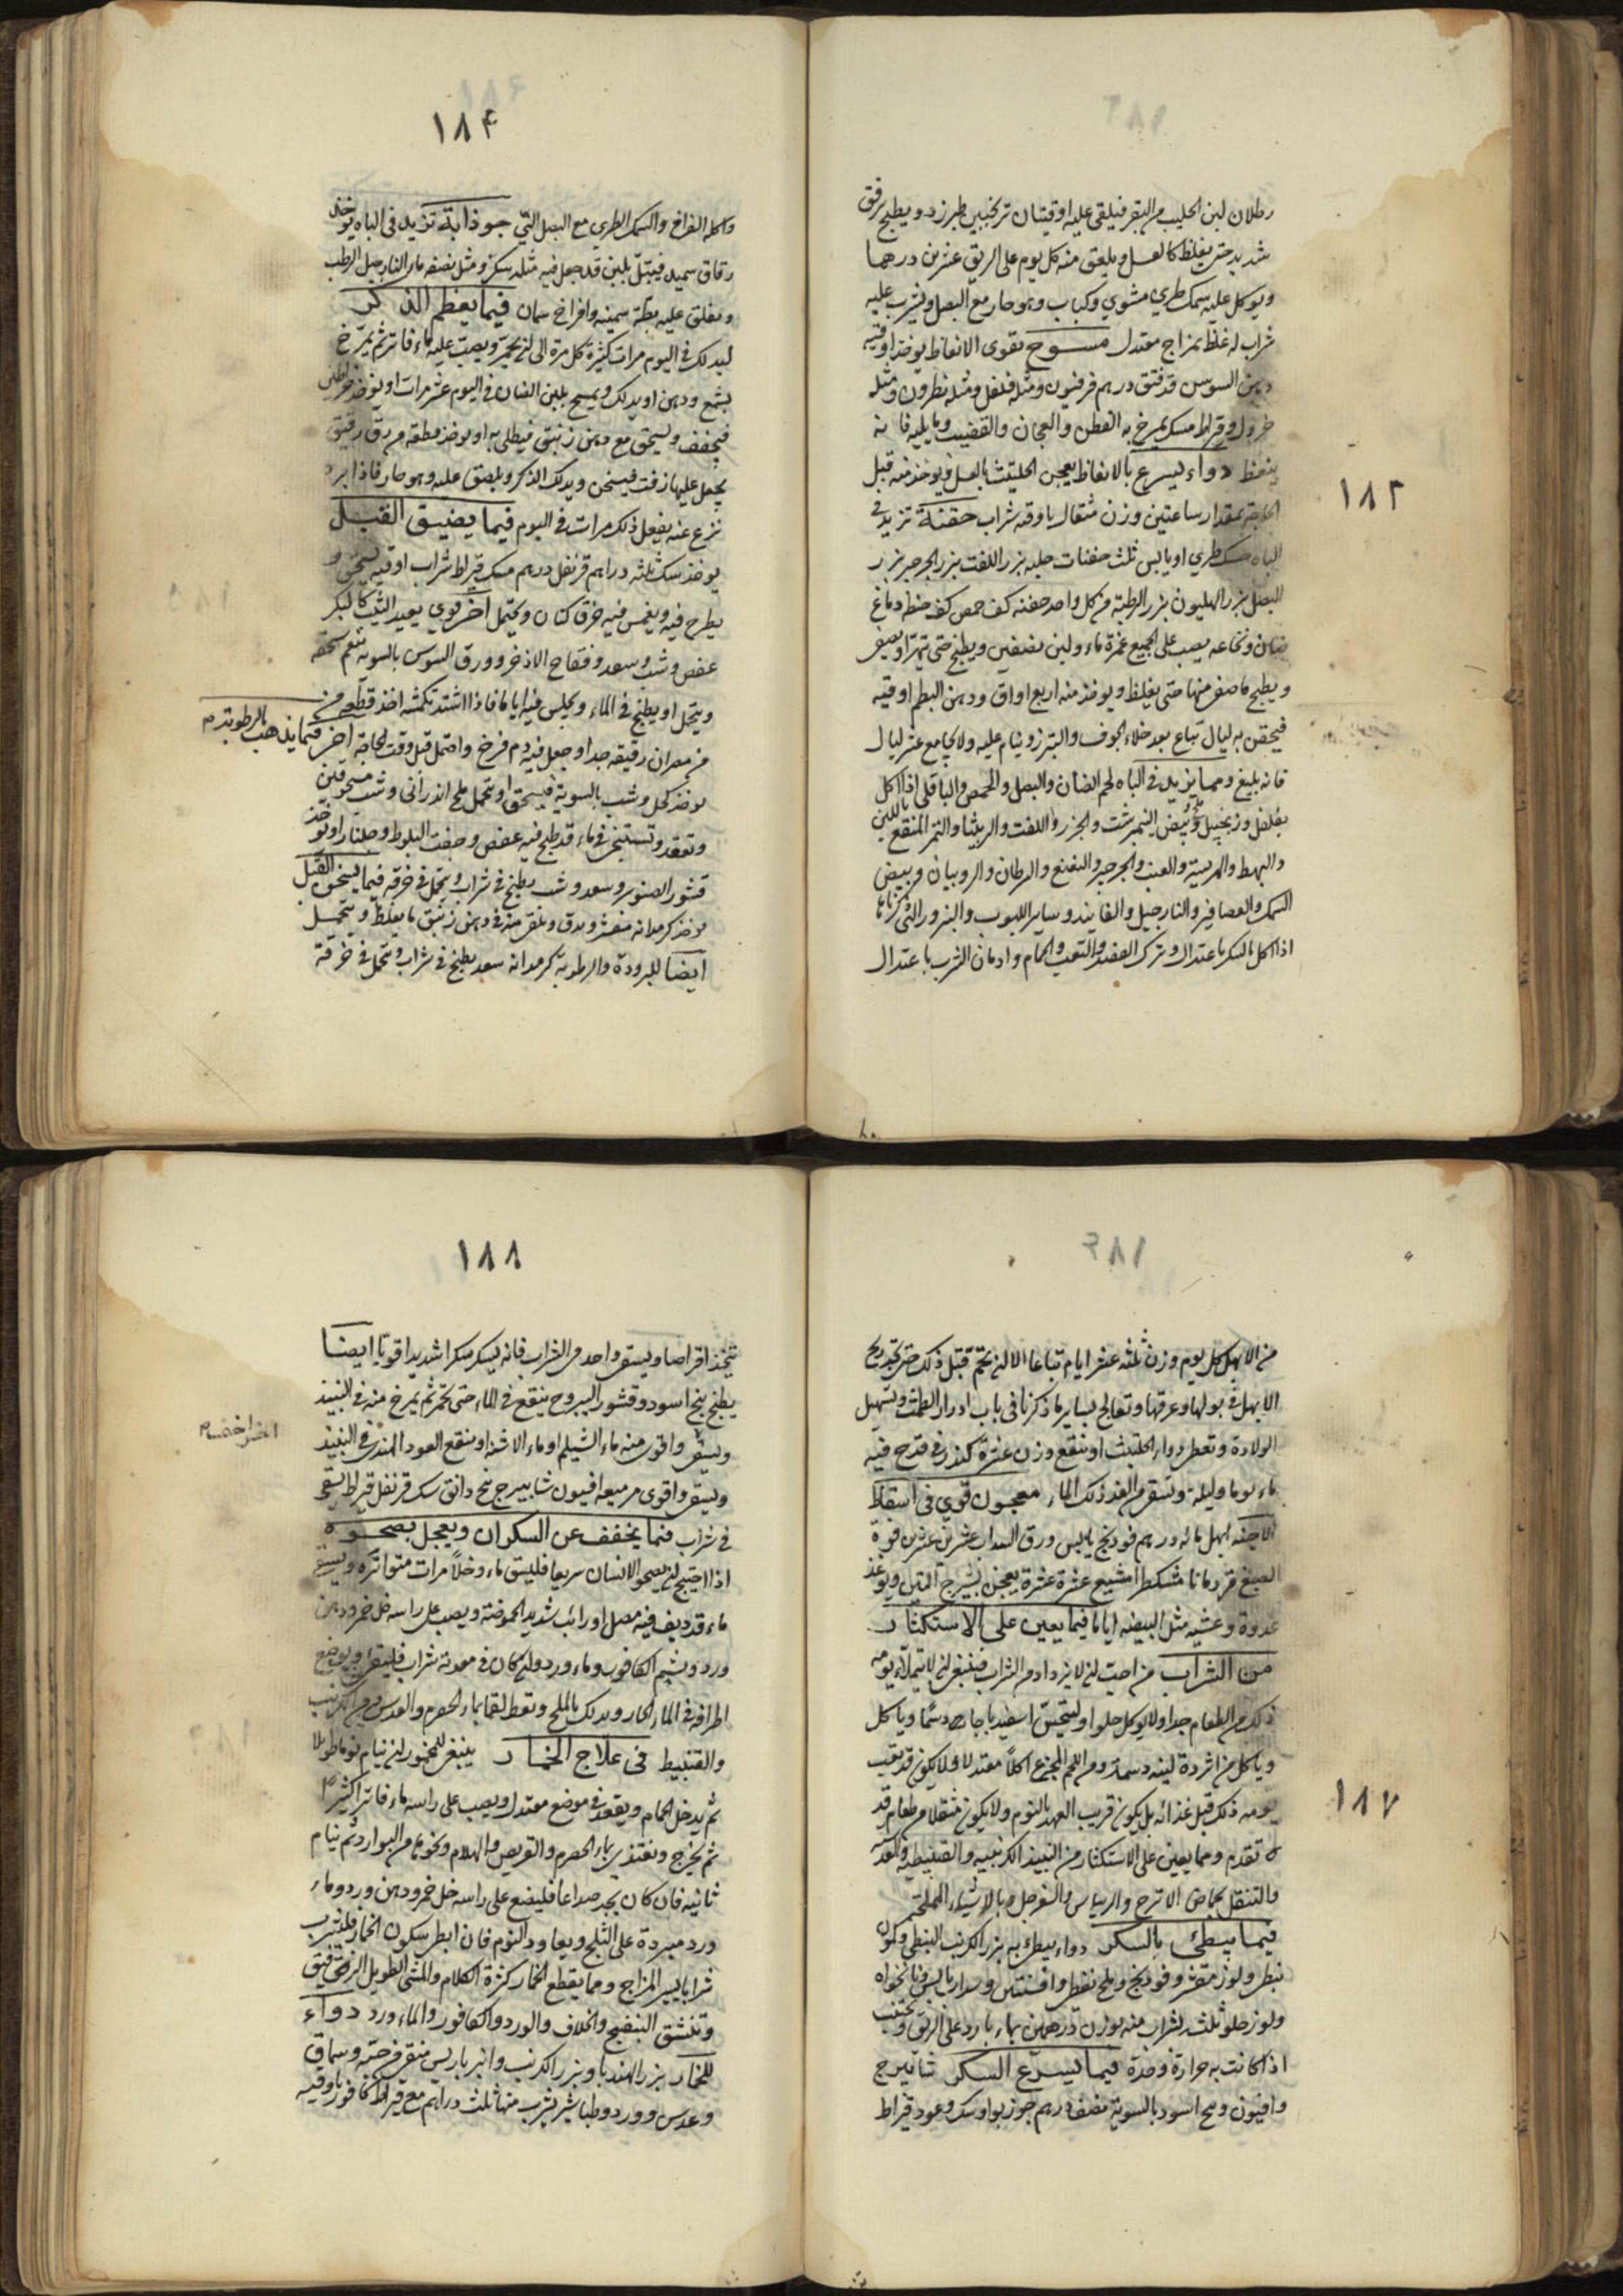 ١٨٣
رطلان لبن الحليب من البقر فيلقى عليه اوقيتان ترنجبين طبرزد ويطبخ برفق
شديد حتى يغلظ كالعسل ويلعق منه كل يوم على الريق عشرين درهما
ويوكل عليه سمك طري مشوي وكباب وهو حار مع البصل ويشرب عليه
شراب له غلظ بمزاج معتدل مسوح يقوى الانعاظ يوخذ اوقيه
دهن السوسن قد فتق درهم فرفيون ومثله فلفل ومثله نطرون ومثله
خردل وقيراط مسك يمرخ به القطن والعجان والقضيب وما يليه فانه
ينعظ دواء يسرع بالانعاظ يعجن الحلتيت بالعسل ويوخذ منه قبل
الحاجة بمقدار ساعتين وزن مثقال باوقيه شراب حقنة تزيد في
الباه حسك طري او يابس ثلث حفنات حلبه بزر اللفت بزر الجرجير بزر
البصل بزر الهليون بزر الرطبة من كل واحد حفنه كف حمص كف حنطه دماغ
ضان ونخاعه يصب على الجميع غمرة ماء ولبن نصفين ويطبخ حتى يتهرا ويصفى
ويطبخ ما صفى منها حتى يغلظ ويوخذ منه اربع اواق ودهن البطم اوقيه
فيحقن به ليال تباع بعد خلاء الجوف والتبرز وينام عليه ولا يجامع عشر ليال
فانه بليغ ومما يزيد في الباه لحم الضان والبصل والحمص والباقلى اذا اكل
بفلفل وزنجبيل وبيض النيمرشت والجزر واللفت والربيثا والتمر المنقع باللبن
والبهط والهريسة والعنب والجرجير والنعنع والسرطان والروبيان وبيض
السمك والعصافير والنارجيل والفانيذ وساير اللبوب والبزور التي ذكرناها
اذا اكل بالسكر باعتدال وترك الفصد والتعب والحمام وادمان الشرب باعتدال
١٨۴
واكله الفراخ والسمك الطري مع البصل التي جوذابة تزيد في الباه يوخذ
رقاق سميد فيبتل بلبن قد جعل فيه مثله سكر ومثل نصفه ماء النارجيل الرطب
ويعلق عليه بطة سمينه وافراخ سمان فيما يعظم الذكر
ليدلك في اليوم مرات كثيرة كل مرة الى ان يحمر ويصب عليه ماء فاتر ثم يمرخ
بشمع ودهن او يدلك ويمسح بلبن الضان في اليوم عشر مرات او يوخذ خراطين
فيجفف ويسحق مع دهن زنبق فيطلى به او يوخذ قطعة من رق رقيق
يجعل عليها زفت فيسخن ويدلك الذكر ويلصق عليه وهو حار فاذا برد
نزع عنه يفعل ذلك مرات في اليوم فيما يضيق القبل
يوخذ سك ثلثه دراهم قرنفل درهم مسك قيراط شراب اوقيه يسحق و
يطرح فيه ويغمس فيه خرق كتان ويحتمل اخر قوي يعيد الثيب كالبكر
عفص وشب وسعد وفقاح الاذخر وورق السوسن بالسويه ينعم سحقه
ويتحمل او يطبخ في الماء ويجلس فيه اياما فاذا اشتد تكمشه اخذ قطعه من
من مصران رقيقه جدا وجعل فيه دم فرخ واحتمل قبل وقت الحاجة اخر فيما يذهب بالرطوبة
يوخذ كحل وشب بالسوية فيسحق او تحمل ملح اندراني وشب مسحوقين
وتقعد وتستنجى في ماء قد طبخ فيه عفص وجفت البلوط وجلنار او يوخذ
قشور الصنوبر وسعد وشب يطبخ في شراب ويتحمل في خرقه فيما يسخن القبل
يوخذ كرمدانه مقشر ويدق ويلقى منه في دهن زنبق ما يغلظ ويتحمل
ايضا للبرودة والرطوبة كرمدانه سعد يطبخ في شراب ويتحمل في خرقة
١٨٧
من الابهل كل يوم وزن ثلثه عشر ايام تباعا الا ان تحم قبل ذلك حتى تجد ريح
الابهل في بولها وعرقها وتعالج بساير ما ذكرنا في باب ادرار الطمث وتسهيل
الولادة وتعطى دواء الحلتيث او ينقع وزن عشرة كندر في قدح فيه
ماء يوما وليلة وتسقى من الغد ذلك الماء معجون قوي في اسقاط
الاجنه ابهل مائه درهم فودنج يابس ورق السداب عشرين عشرين فوة
الصبغ قردمانا مشكطرامشيع عشرة عشرة يعجن بشيرج التين ويوخذ
غدوة وعشيه مثل البيضه اياما فيما يعين على الاستكثار
من الشراب من احب ان لا يزداد من الشراب فينبغي ان لا يتملاء يومه
ذلك من الطعام جدا ولا يوكل حلوا وليتحسى اسفيدباجات دسما وياكل
وياكل من اثردة لينه دسمة ومن اللحم المجزع اكلا معتدلا ولا يكون قد تعب
يومه ذلك قبل غذائه بل يكون قريب العهد بالنوم ولا يكون متنقلا من طعام قد
تقدم ومما يعين على الاستكثار من النبيذ الكرنبيه والقنبيطيه والعدسيه
والتنقل بحماض الاترج والريباس والسفرجل وبالاشياء المملحة
فيما يبطئ بالسكر دواء يبطئ به بزر الكرنب النبطي وكمون
نبطي ولوز مقشر وفودنج وملح نفطي وافسنتين وسداب يابس ونانخواه
ولوز حلو ثلث يشراب منه بوزن درهمين بماء بارد على الريق ويجتنب
اذا كانت به حرارة وحدة فيما يسرع السكر شابيرج
وافيون وبنج اسود بالسوية نصف درهم جوز بوا وسك وعود قيراط
١٨٨
يتخذ اقراصا ويسقى واحد في الشراب فانه يسكر سكرا شديدا قويا ايضا
يطبخ بنج اسود وقشور اليبروح ينقع في الماء حتى يحمر ثم يمزج منه في النبيذ
ويسقى واقوى منه ماء الشيلم او ماء الاشنه او ينقع العود الهندي في النبيذ
ويسقى واقوى من ميعه افيون شابيرج بنج دانق سك قرنفل قيراط يسقى
في شراب فيما يخفف عن السكران ويعجل بصحوه
اذا احتيج ان يصحو الانسان سريعا فليسق ماء وخلا مرات متواتره ويسقى
ماء قد ديف فيه مصل او رائب شديد الحموضة ويصب على راسه خل خمر ودهن
ورد ويشم الكافور وماء ورد وان كان في معدته شراب فليتقيا ويوضع
اطرافه في الماء الحار ويدلك بالملح وتعطى لقما بماء الحصرم والعدس ومن الكرنب
والقنبيط في علاج الخمار ينبغي للمخمور ان ينام نوما طويلا
ثم يدخل الحمام ويقعد في موضع معتدل ويصب على راسه ماء فاترا كثيرا
ثم يخرج ويغتذى بماء الحصرم والقريص والهلام ونحوها من البوارد ثم ينام
ثانيه فان كان يجد صداعا فليضع على راسه خل خمر ودهن ورد وماء
ورد مبردة على الثلج ويعاود النوم فان ابطئ سكون الخمار فليشرب
شرابا يسير المزاج ومما يقطع الخمار كثرة الكلام والمشي الطويل الرفيق
وتنشق البنفسج والخلاف والورد والكافور والماء ورد دواء
للخمار بزر الهندبا وبزر الكرنب وانبرباريس منقى من حبه وسماق
وعدس وورد وطباشير يشرب منها ثلث دراهم مع قيراط كافور باوقيه